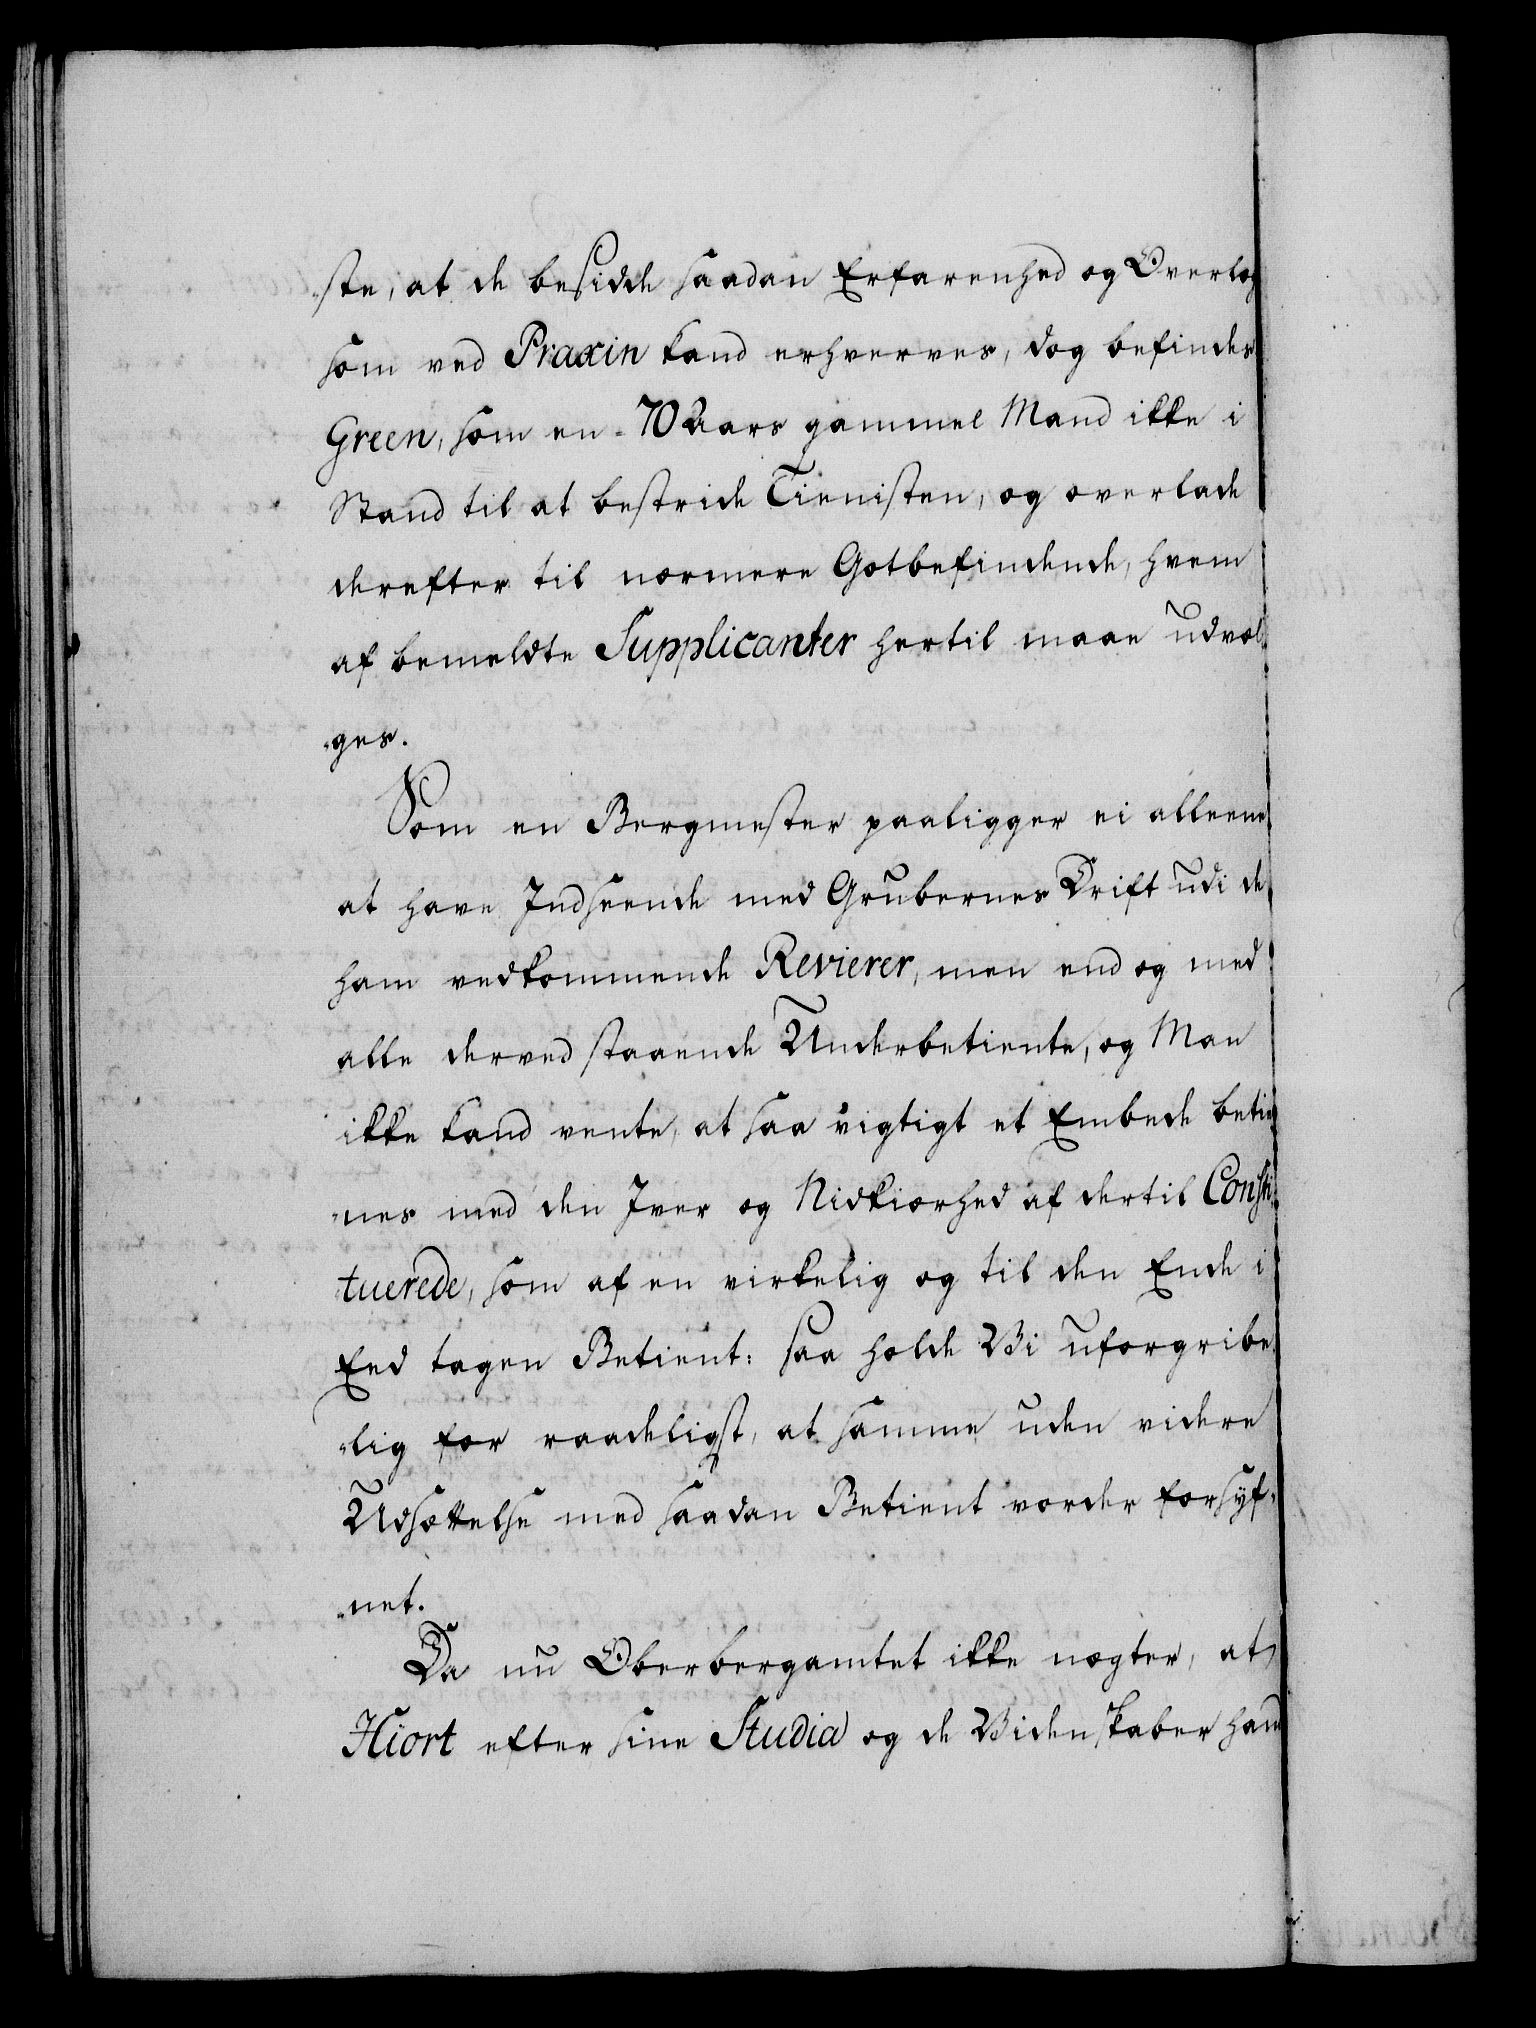 -ste, at de besidde saadan Erfarenhed og Overlæg
som ved Praxin kand erhverves, dog befindes
Green, som en 70 Aars gammel Mand ikke i
Stand til at bestride Tienisten, og overlade
derefter til nærmere Gotbefindende, hvem
af bemeldte Supplicanter hertil maae udvæl-
-ges.
Som en Bergmester paaligger ei alleene
at have Indseende med Grubernes Drift udi de
ham vedkommende Revierer, men end og med
alle derved staaende Underbetiente, og Man
ikke kand vente, at saa vigtigt et Embede betie
-nes med den Iver og Nidkiærhed af dertil Consti-
tuerede, som af en virkelig og til den Ende i
Eed tagen Betient: saa holde Vi uforgribe-
-lig for raadeligst, at samme uden videre
Udsættelse med saadan Betient vorder forsyf-
-net.
Da nu Oberbergamtet ikke nægter, at
Hiort efter sine Studia og de Videnskaber hand